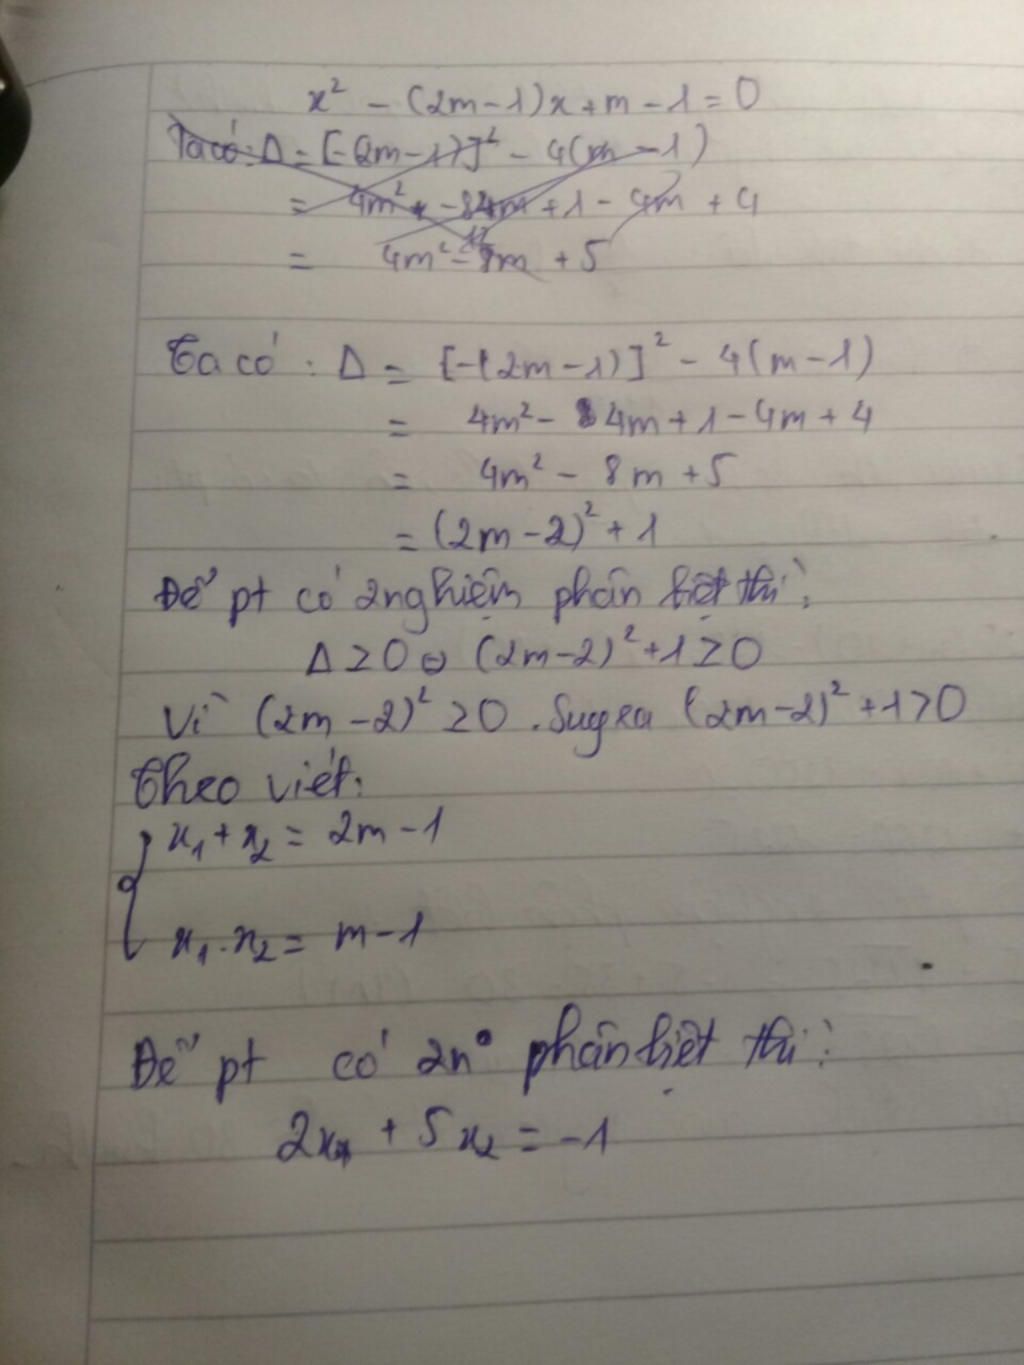 x² - (2m-1)x + m - 1 = 0
Ta có: Δ = [-(2m-1)]² - 4(m-1)
= 4m² - 4m + 1 - 4m + 4
= 4m² - 8m + 5
Ta có: Δ = [-(2m-1)]² - 4(m-1)
= 4m² - 4m + 1 - 4m + 4
= 4m² - 8m + 5
= (2m-2)² + 1
Để pt có 2 nghiệm phân biệt thì:
Δ ≥ 0 ⇔ (2m-2)² + 1 ≥ 0
Vì (2m-2)² ≥ 0. Suy ra (2m-2)² + 1 > 0
Theo viét:
{ x₁ + x₂ = 2m - 1
x₁ . x₂ = m - 1
Để pt có 2n° phân biệt thì:
2x₁ + 5x₂ = -1